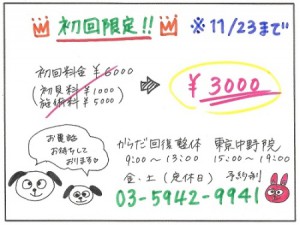 初回限定!! ※11/23まで
初回料金 ¥6000
(初見料 ¥1000
施術料 ¥5000)
¥3000
お電話
お待ちして
おりますゎ
からだ回復整体 東京中野院
9:00~13:00 15:00~19:00
金・土(定休日) 予約制
03-5942-9941